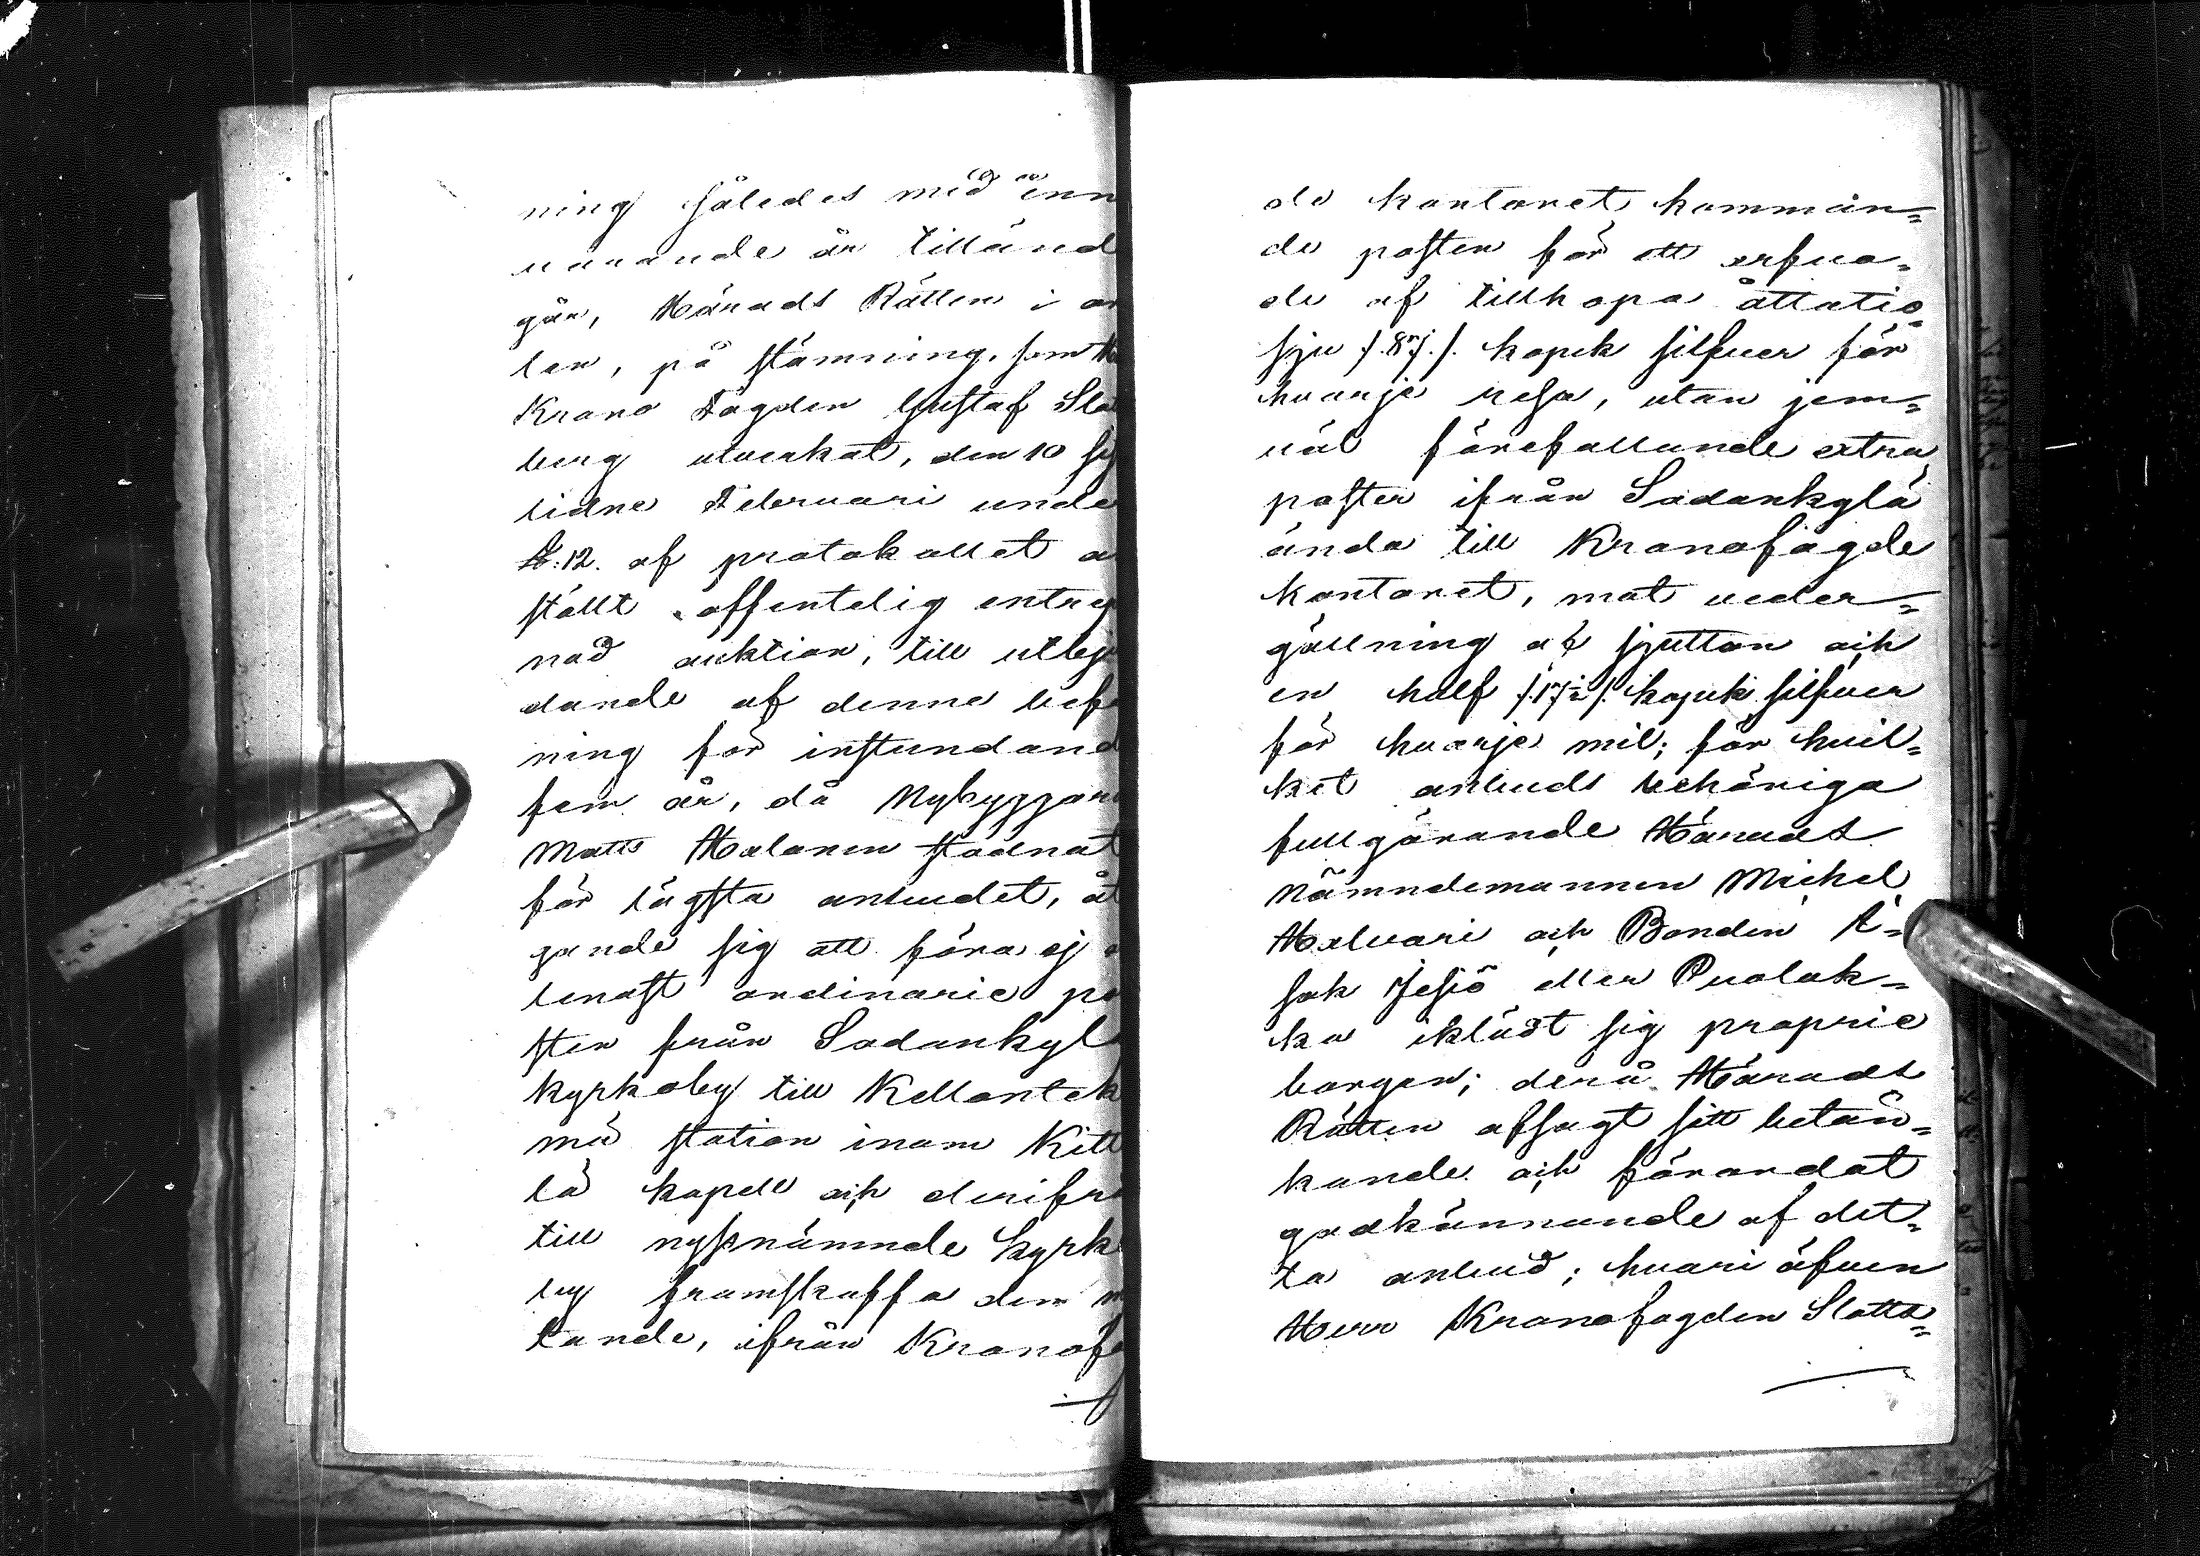 ning således med inn
varande år tilländ
går, Härads Rätten i or
ten, på stämning, som H
Krono Fogden Gustaf Sla
berg utverkat, den 10 sis
lidne Februari unde
§. 12. af protokollet a
ställt offentelig entrep
nad auktion, till utbju
dande af denne bef
ning för instundand
fem år, då Nybyggare
Matts Halonen stadnat
för lägsta anbudet, åt
gande sig att föra ej
lenast ordinarie po
sten från Sodankyl
kyrkoby till Kellontek
mä station inom Kitt
lä kapell och derifr
till nyssnämnde kyrk
by framskaffa den m
tande, ifrån Kronof
de kontoret komman=
de posten för ett arfvo=
de af tillhopa åttatio=
sju /.87./. kopek silfver för
hvarje resa, utan jem=
väl förefallande extra
poster ifrån Sodankylä
ända till Kronofogde
kontoret, mot veder=
gällning af sjutton och
en half /.17½/. kopek silfver
för hvarje mil; för hvil=
ket anbuds behöriga
fullgörande Härads
Nämndemannen Michel
Halvari och Bonden I=
sak Jesiö eller Puolak=
ka iklädt sig proprie
borgen; derå Härads
Rätten afsagt sitt betän=
kande och förordat
godkännande af det=
ta anbud; hvari äfven
Herr Kronofogden Slotta=